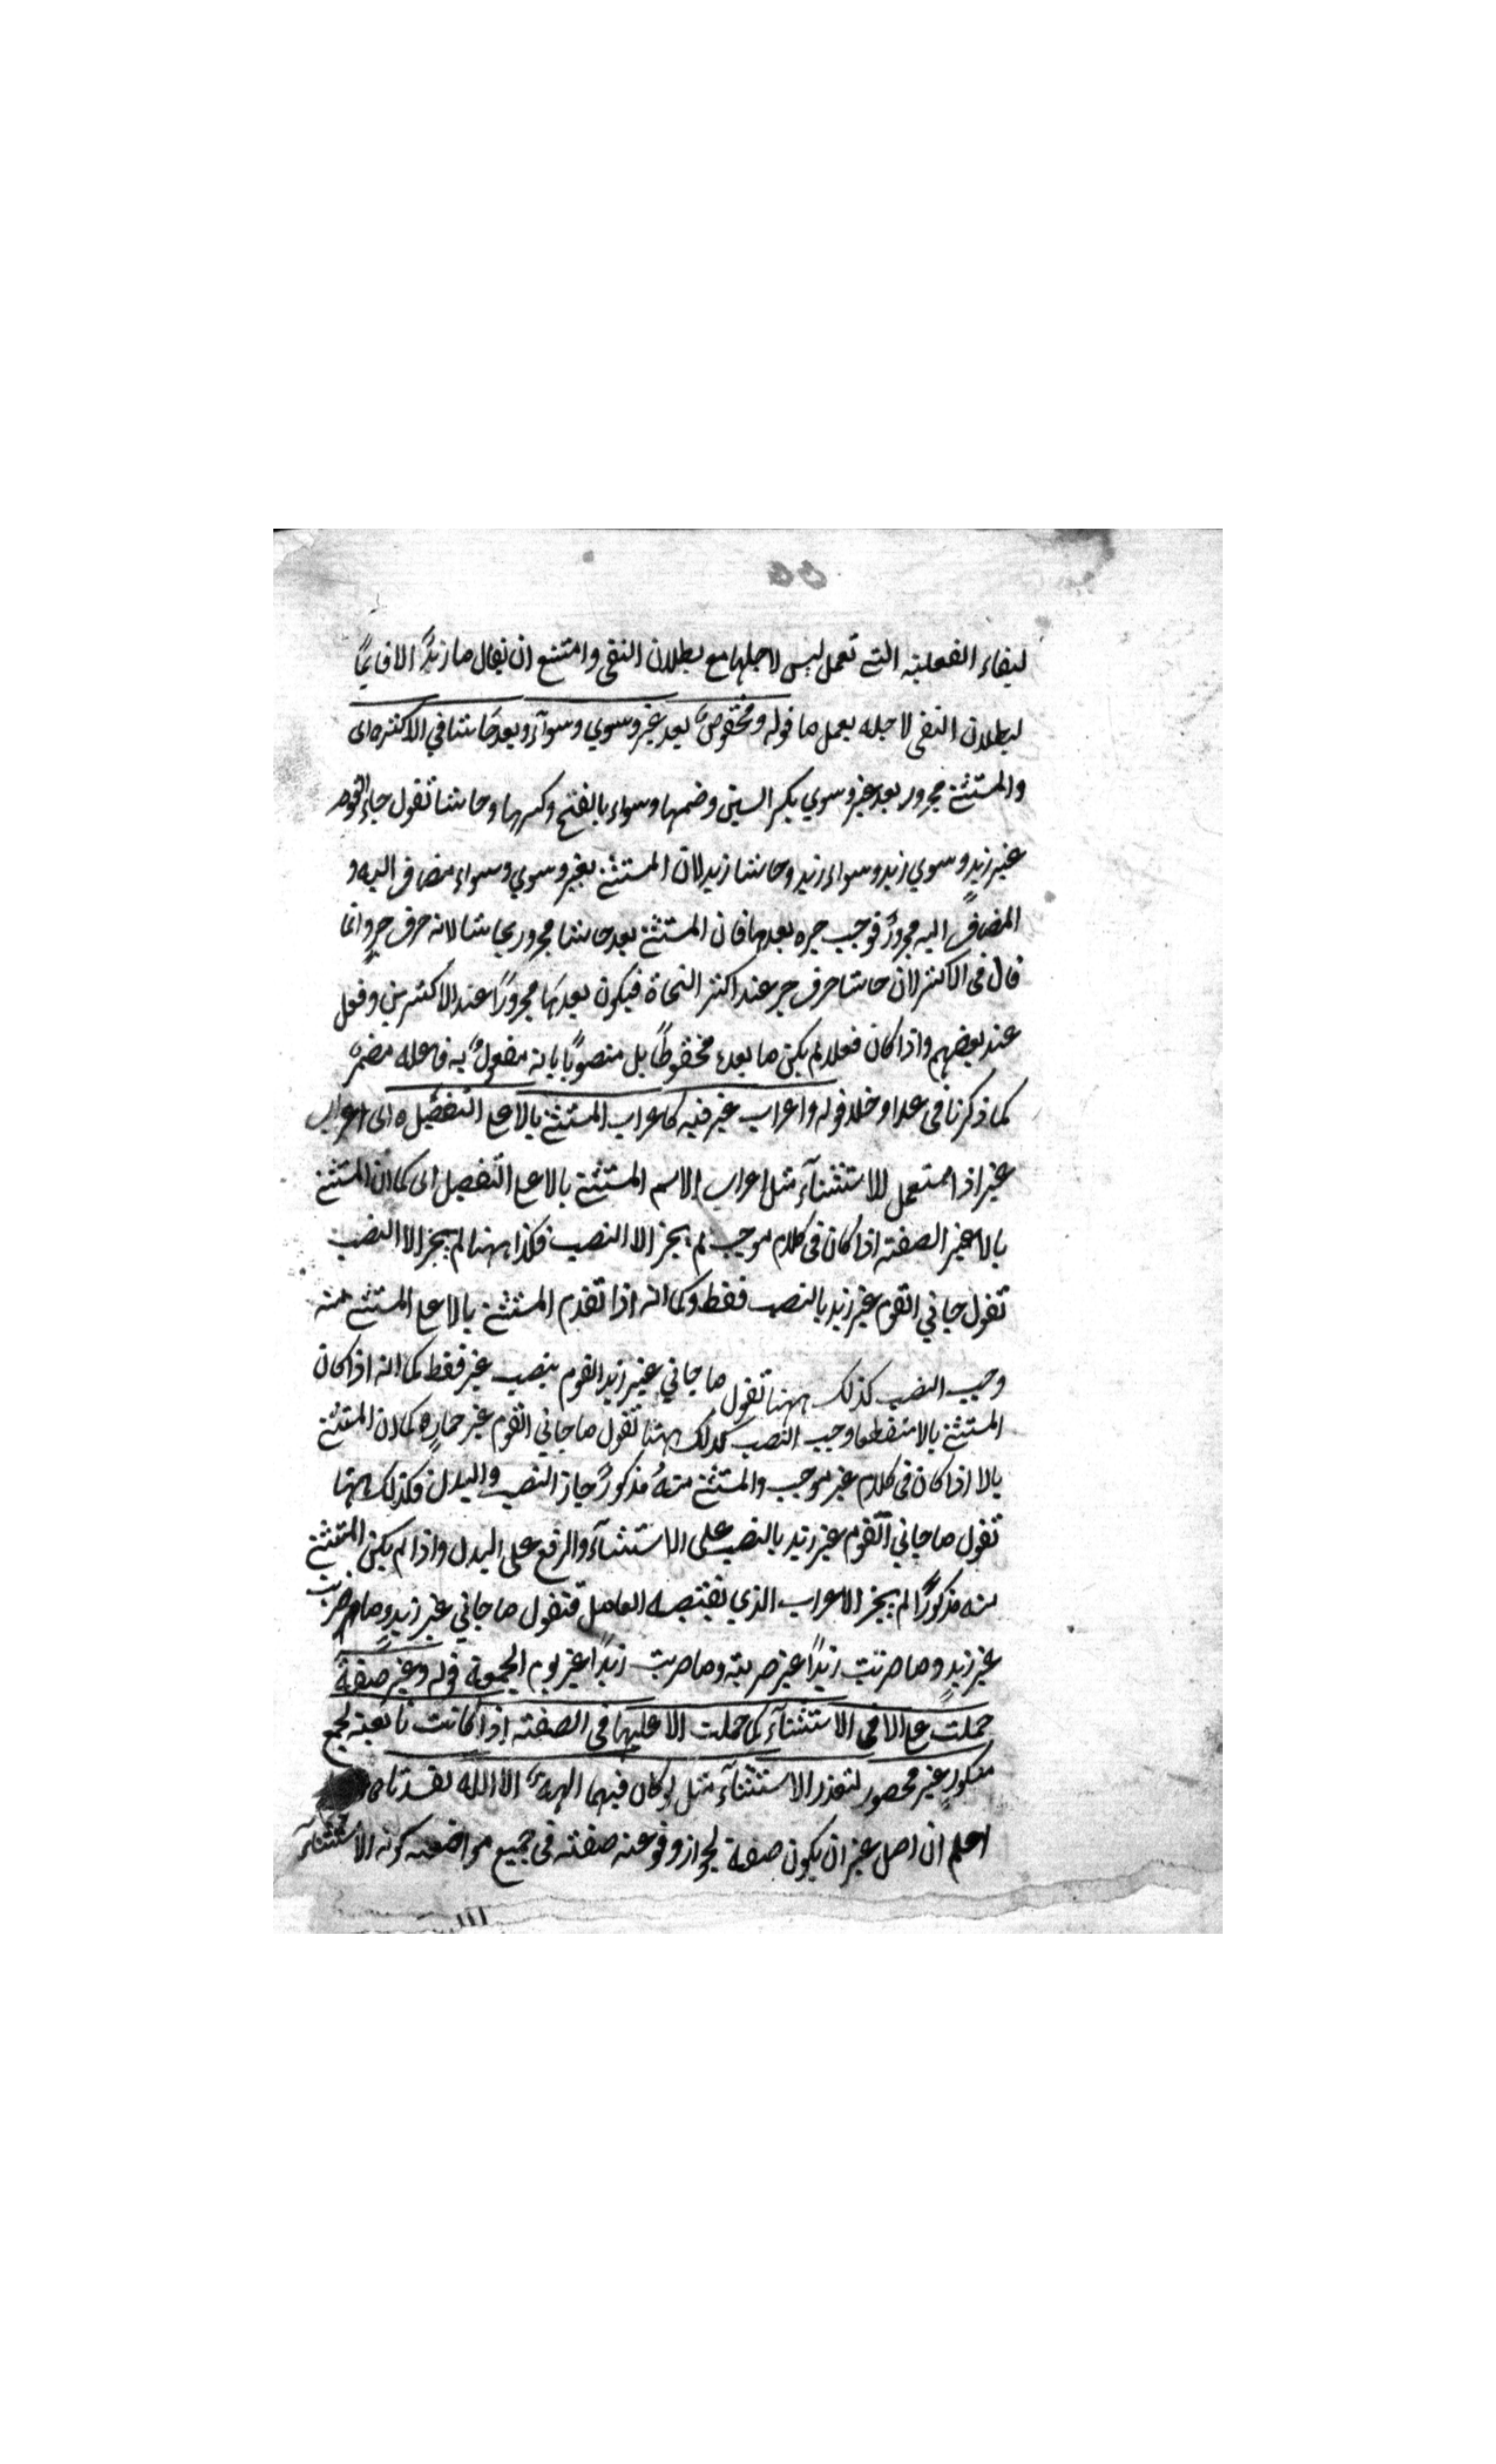 لبقاء الفعلية التي تعمل ليس لاجلها مع بطلان النفى وامتنع ان يقال ما زيدٌ الا قايمًا
لبطلان النفى لاجله يعمل ما قوله ومخفوضٌ بعد غير وسوي وسوآء وبعد حاشا في الاكثر ه اى
والمستثنى مجرور بعد غير وسوي بكسر السين وضمها وسواء بالفتح وكسرها وحاشا تقول جاء القوم
غير زيدٍ وسوي زيد وسواء زيد وحاشا زيد لان المستثنى بغير وسوي وسواء مضاف اليه و
المضاف اليه مجرورٌ فوجب جره بعدها فان المستثنى بعد حاشا مجرور بحاشا لانه حرف جرٍ وانما
قال فى الاكثر لان حاشا حرف جر عند اكثر النحاة فيكون بعدها مجرورًا عند الاكثرين وفعل
عند بعضهم واذا كان فعلا لم يكن ما بعده مخفوظًا بل منصوبًا بانه مفعولٌ به فاعله مضمرٌ
كما ذكرنا فى عدا وخلا قوله واعراب غير فيه كاعراب المستثنى بالا على التفصيل ه اى اعراب
غير اذا استعمل للاستثنآء مثل اعراب الاسم المستثنى بالا على التفصيل اى كما ان المستثنى
بالا غير الصفة اذا كان فى كلام موجب لم يجز الا النصب فكذا ههنا لم يجز الا النصب
تقول جاني القوم غير زيد بالنصب فقط وكما انه اذا تقدم المستثنى بالا على المستثنى منه
وجب النصب كذلك ههنا تقول ما جاني غير زيد القوم بنصب غير فقط كما انه اذا كان
المستثنى بالا منقطعا وجب النصب كذلك ههنا تقول ما جاني القوم غير حمارٍ ه كما ان المستثنى
بالا اذا كان فى كلام غير موجب والمستثنى منهُ مذكورٌ جاز النصب والبدل فكذلك ههنا
تقول ما جاني القوم غير زيد بالنصب على الاستثنآء والرفع على البدل واذا لم يكن المستثنى
منه مذكورًا لم يجز الاعراب الذي يقتضيه العامل فتقول ما جاني غير زيدٍ وما ضربت
غير زيدٍ وما ضربت زيدًا غير ضربته وما ضربت زيدًا غير يوم الجمعة قوله وغير صفةٌ
حملت على الا فى الاستثنآء كما حملت الا عليها فى الصفة اذا كانت تابعة لجمع
منكورٍ غير محصور لتعذر الاستثنآء مثل لو كان فيهما الهةٌ الا الله لفسدتا ه
اعلم ان اصل غير ان يكون صفة لجواز وقوعه صفة فى جميع مواضعه كونه الاستثنآء